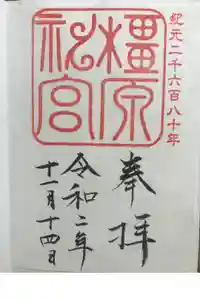 紀元二千六百八十年
橿原神宮
奉拝
令和二年
十一月十四日